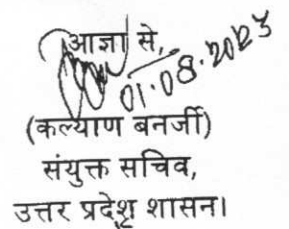 आज्ञा से,
01.08.2023
(कल्याण बनर्जी)
संयुक्त सचिव,
उत्तर प्रदेश शासन।